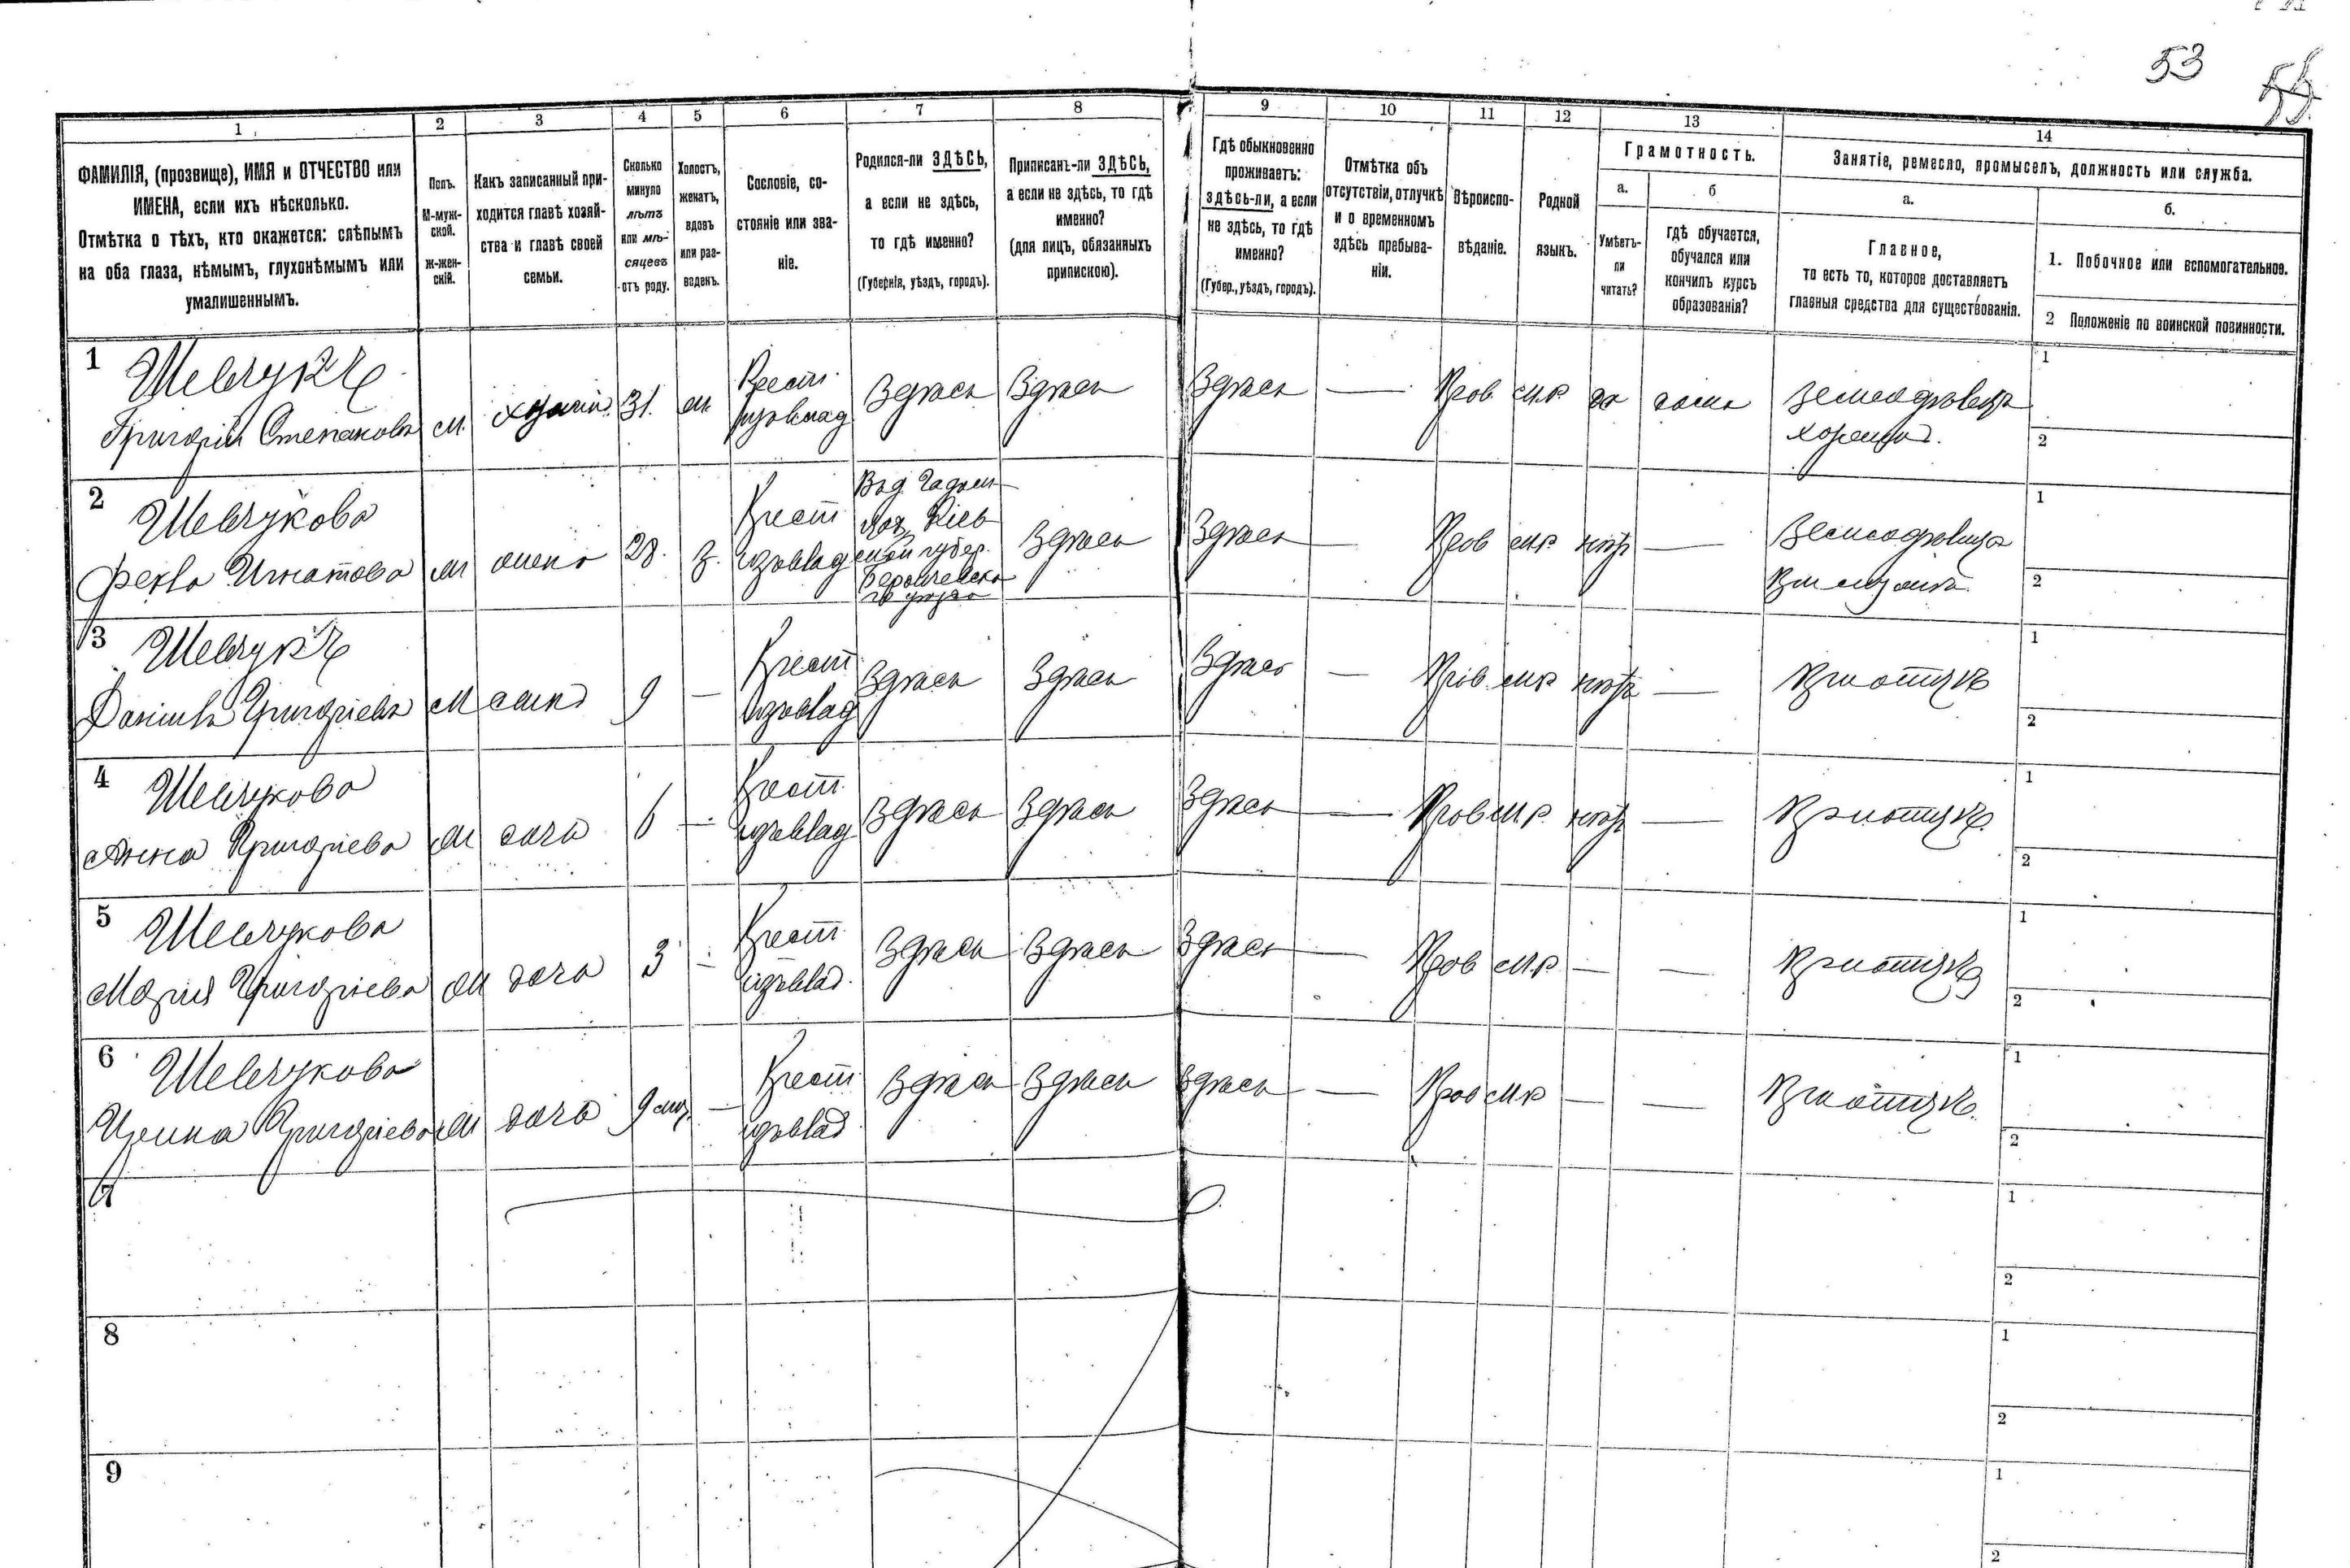 53
1
2
3
4
5
6
7
8
9
10
11
12
13
14
ФАМИЛІЯ, (прозвище), ИМЯ и ОТЧЕСТВО или
ИМЕНА, если ихъ нѣсколько.
Отмѣтка о тѣхъ, кто окажется: слѣпымъ
на оба глаза, нѣмымъ, глухонѣмымъ или
умалишеннымъ.
Полъ.
М-муж-
ской.
ж-жен-
скій.
Какъ записанный при-
ходится главѣ хозяй-
ства и главѣ своей
семьи.
Сколько
минуло
лѣтъ
или мѣ-
сяцевъ
отъ роду.
Холостъ,
женатъ,
вдовъ
или раз-
веденъ.
Сословіе, со-
стояніе или зва-
ніе.
Родился-ли ЗДѢСЬ,
а если не здѣсь,
то гдѣ именно?
(Губернія, уѣздъ, городъ).
Приписанъ-ли ЗДѢСЬ,
а если не здѣсь, то гдѣ
именно?
(для лицъ, обязанныхъ
припискою).
Гдѣ обыкновенно
проживаетъ:
здѣсь-ли, а если
не здѣсь, то гдѣ
именно?
(Губер., уѣздъ, городъ).
Отмѣтка объ
отсутствіи, отлучкѣ
и о временномъ
здѣсь пребыва-
ніи.
Вѣроиспо-
вѣданіе.
Родной
языкъ.
Грамотность.
а.
Умѣетъ-
ли
читать?
б
гдѣ обучается,
обучался или
кончилъ курсъ
образованія?
Занятіе, ремесло, промыселъ, должность или служба.
а.
Главное,
то есть то, которое доставляетъ
главныя средства для существованія.
б.
1. Побочное или вспомогательное.
2 Положеніе по воинской повинности.
1 Шевчукъ
Григорій Степановъ м. хозяинъ 31. ж. Крест. Здѣсь Здѣсь Здѣсь — Прав м.р. да дома земледѣлецъ
хозяинъ.
1
2
2 Шевчукова
Фекла Игнатова ж жена 28. з. Крест Здѣсь Здѣсь — Прав м.р. нѣтъ —
Кіев
ской губер.
Бердичевска
го уѣзда
1
2
3 Шевчукъ
Данилъ Григоріевъ м сынъ 9 — Крест Здѣсь Здѣсь Здѣсь — Прав м.р нѣтъ — При отцѣ
1
2
4 Шевчукова
Анна Григоріева ж дочь 6 — Крест. Здѣсь Здѣсь Здѣсь — Прав м.р. нѣтъ — При отцѣ.
1
2
5 Шевчукова
Марія Григоріева ж дочь 3 — Крест Здѣсь Здѣсь Здѣсь — Прав м.р. — — При отцѣ
1
2
6 Шевчукова
Ирина Григоріева ж дочь 9 мѣс. — Крест Здѣсь Здѣсь Здѣсь — Прав м.р — — При отцѣ.
1
2
7
1
2
8
1
2
9
1
2